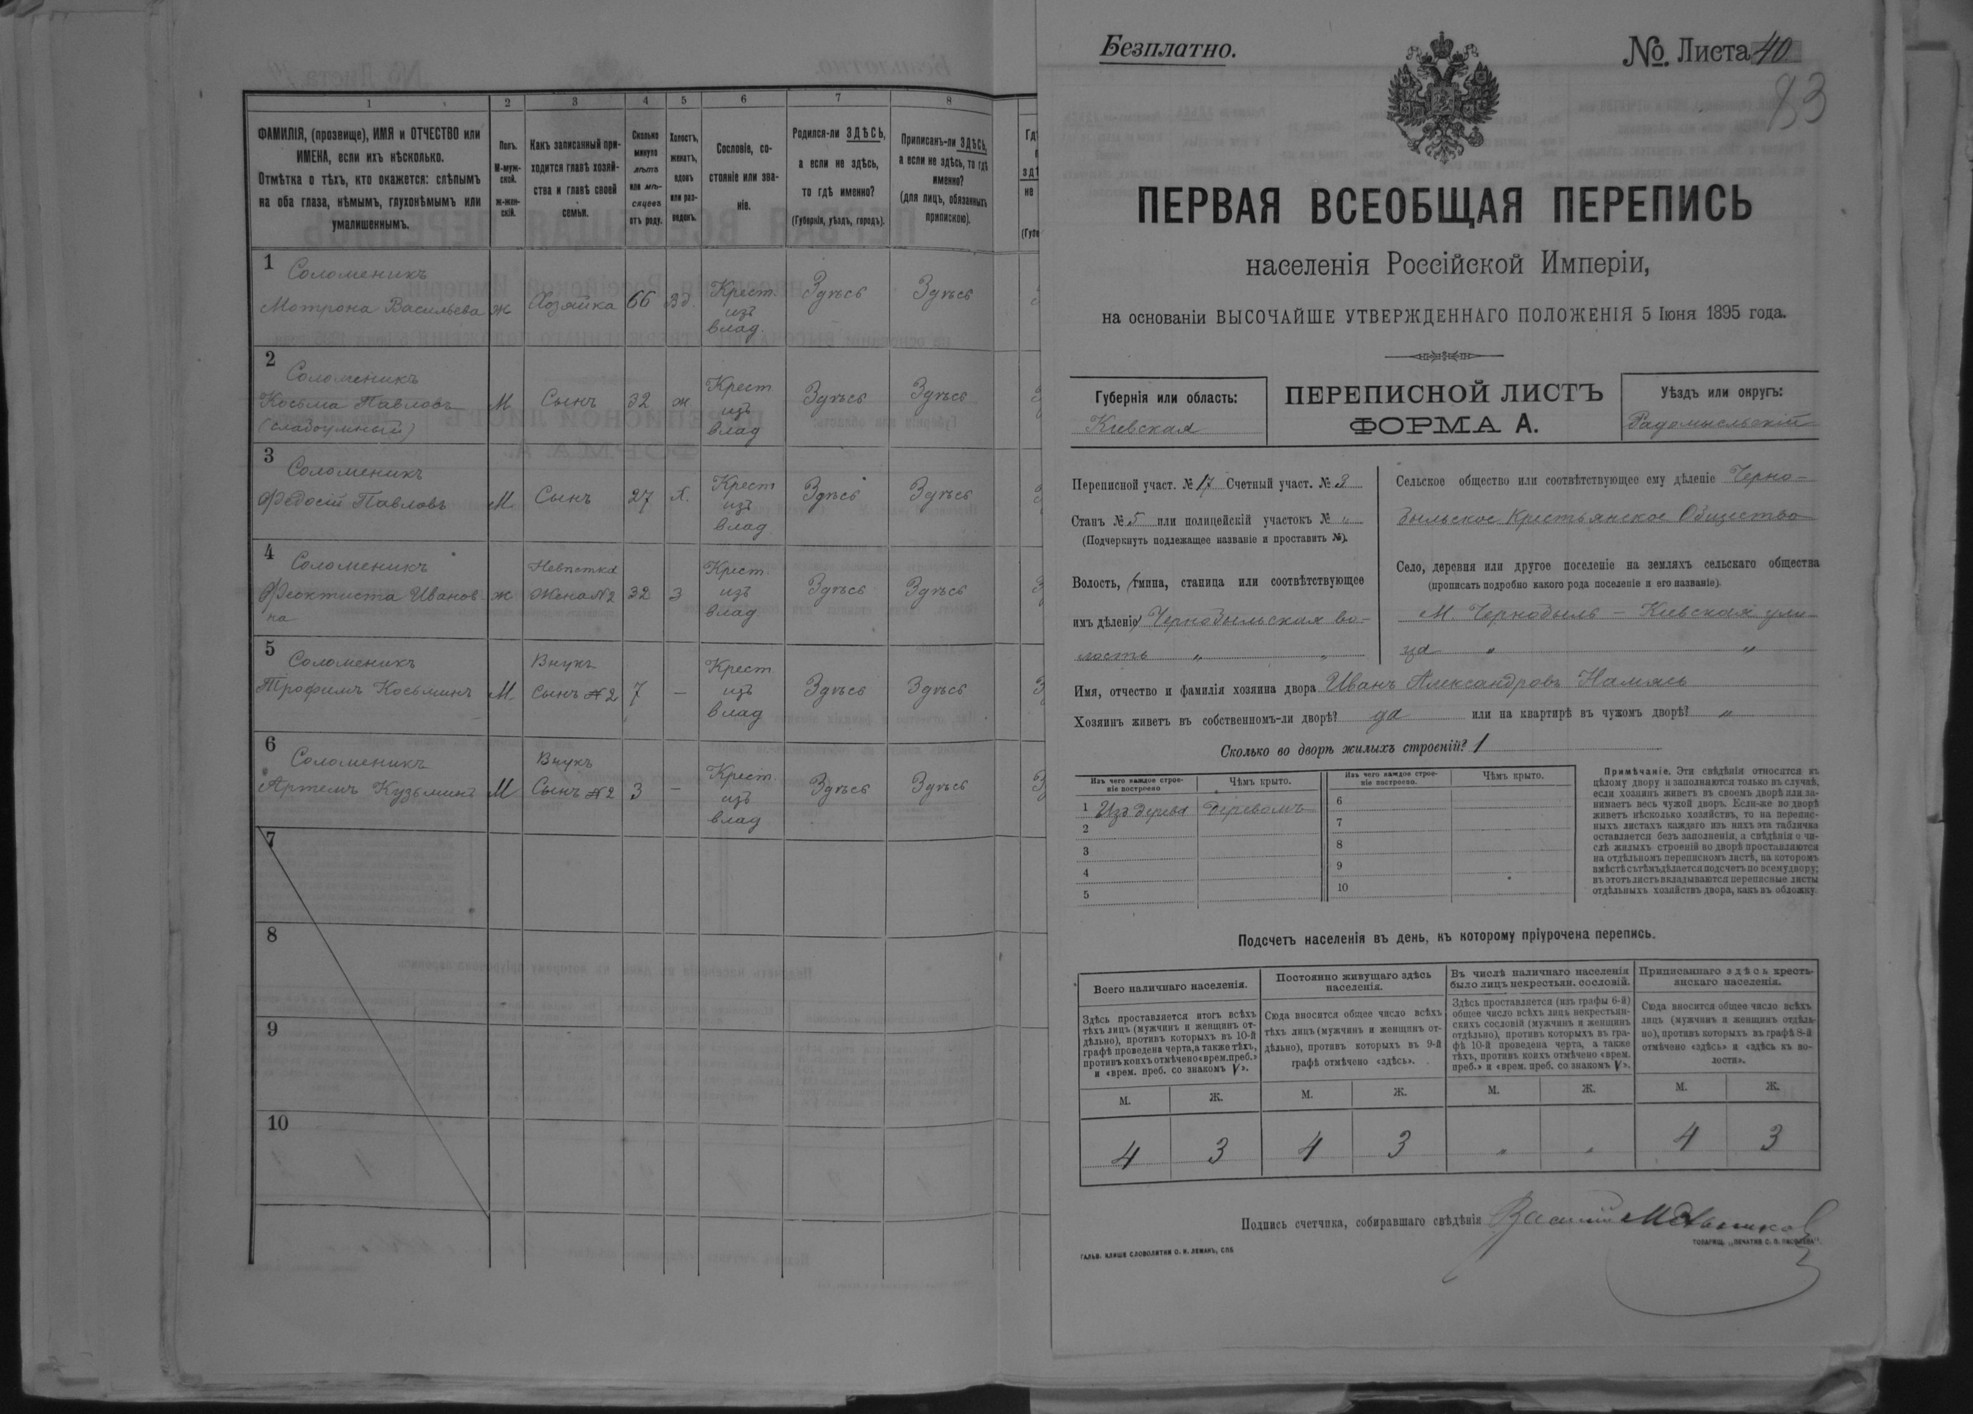 1 2 3 4 5 6 7 8
ФАМИЛІЯ, (прозвище), ИМЯ и ОТЧЕСТВО или
ИМЕНА, если ихъ нѣсколько.
Отмѣтка о тѣхъ, кто окажется: слѣпымъ
на оба глаза, нѣмымъ, глухонѣмымъ или
умалишеннымъ.
Полъ.
М-муж-
ской.
ж-жен-
скій.
Какъ записанный при-
ходится главѣ хозяй-
ства и главѣ своей
семьи.
Сколько
минуло
лѣтъ
или мѣ-
сяцевъ
отъ роду.
Холостъ,
женатъ,
вдовъ
или раз-
веденъ.
Сословіе, со-
стояніе или зва-
ніе.
Родился-ли ЗДѢСЬ,
а если не здѣсь,
то гдѣ именно?
(Губернія, уѣздъ, городъ).
Приписанъ-ли ЗДѢСЬ,
а если не здѣсь, то гдѣ
именно?
(для лицъ, обязанныхъ
припискою).
1 Соломеникъ
Мотрона Васильева ж Хозяйка 66 Вд. Крест. изъ влад. Здѣсь Здѣсь
2 Соломеникъ
Косьма Павловъ М Сынъ 32 ж Крест изъ влад Здѣсь Здѣсь
(слабоумный)
3 Соломеникъ
Федосій Павловъ М Сынъ 27 х. Крест изъ влад Здѣсь Здѣсь
4 Соломеникъ Невѣстка
Феоктиста Иванов- ж Жена №2 32 З Крест. изъ влад Здѣсь Здѣсь
на
5 Соломеникъ Внукъ
Трофимъ Косьминъ М Сынъ №2 7 — Крест изъ влад Здѣсь Здѣсь
6 Соломеникъ Внукъ
Артемъ Кузьминъ М Сынъ №2 3 — Крест. изъ влад Здѣсь Здѣсь
7
8
9
10
Безплатно.
№. Листа 40
93
ПЕРВАЯ ВСЕОБЩАЯ ПЕРЕПИСЬ
населенія Россійской Имперіи,
на основаніи ВЫСОЧАЙШЕ УТВЕРЖДЕННАГО ПОЛОЖЕНІЯ 5 Іюня 1895 года.
Губернія или область:
Кіевская
ПЕРЕПИСНОЙ ЛИСТЪ
ФОРМА А.
Уѣздъ или округъ:
Радомысльскій
Переписной участ. № 17 Счетный участ. № 3
Станъ № 5 или полицейскій участокъ № "
(Подчеркнуть подлежащее названіе и проставить №).
Волость, гмина, станица или соотвѣтствующее
имъ дѣленіе Чернобыльская во-
лость " "
Сельское общество или соотвѣтствующее ему дѣленіе Черно-
быльское Крестьянское Общество
Село, деревня или другое поселеніе на земляхъ сельскаго общества
(прописать подробно какого рода поселеніе и его названіе).
М. Чернобыль — Кіевская ули-
ца " "
Имя, отчество и фамилія хозяина двора Иванъ Александровъ Намясь
Хозяинъ живетъ въ собственномъ-ли дворѣ? да или на квартирѣ въ чужомъ дворѣ? "
Сколько во дворѣ жилыхъ строеній? 1
Изъ чего каждое строе-
ніе построено
Чѣмъ крыто.
Изъ чего каждое строе-
ніе построено.
Чѣмъ крыто.
1 Изъ дерева Деревомъ 6
2 7
3 8
4 9
5 10
Примѣчаніе. Эти свѣдѣнія относятся къ
цѣлому двору и заполняются только въ случаѣ,
если хозяинъ живетъ въ своемъ дворѣ или за-
нимаетъ весь чужой дворъ. Если-же во дворѣ
живетъ нѣсколько хозяйствъ, то на перепис-
ныхъ листахъ каждаго изъ нихъ эта табличка
оставляется безъ заполненія, а свѣдѣнія о чи-
слѣ жилыхъ строеній во дворѣ проставляются
на отдѣльномъ переписномъ листѣ, на которомъ
вмѣстѣ съ тѣмъ дѣлается подсчетъ по всему двору;
въ этотъ листъ вкладываются переписные листы
отдѣльныхъ хозяйствъ двора, какъ въ обложку.
Подсчетъ населенія въ день, къ которому пріурочена перепись.
Всего наличнаго населенія.
Здѣсь проставляется итогъ всѣхъ
тѣхъ лицъ (мужчинъ и женщинъ от-
дѣльно), противъ которыхъ въ 10-й
графѣ проведена черта, а также тѣхъ,
противъ коихъ отмѣчено «врем. преб.»
и «врем. преб. со знакомъ V».
Постоянно живущаго здѣсь
населенія.
Сюда вносится общее число всѣхъ
тѣхъ лицъ (мужчинъ и женщинъ от-
дѣльно), противъ которыхъ въ 9-й
графѣ отмѣчено «здѣсь».
Въ числѣ наличнаго населенія
было лицъ некрестьян. сословій.
Здѣсь проставляется (изъ графы 6-й)
общее число всѣхъ лицъ некрестьян-
скихъ сословій (мужчинъ и женщинъ
отдѣльно), противъ которыхъ въ гра-
фѣ 10-й проведена черта, а также
тѣхъ, противъ коихъ отмѣчено «врем.
преб.» и «врем. преб. со знакомъ V».
Приписаннаго здѣсь кресть-
янскаго населенія.
Сюда вносится общее число всѣхъ
лицъ (мужчинъ и женщинъ отдѣль-
но), противъ которыхъ въ графѣ 8-й
отмѣчено «здѣсь» и «здѣсь въ во-
лости».
М. Ж. М. Ж. М. Ж. М. Ж.
4 3 4 3 " " 4 3
Подпись счетчика, собиравшаго свѣдѣнія Василий
ГАЛЬВ. КЛИШЕ СЛОВОЛИТНИ О. И. ЛЕМАНЪ, СПБ
ТОВАРИЩ. „ПЕЧАТНЯ С. П. ЯКОВЛЕВА".